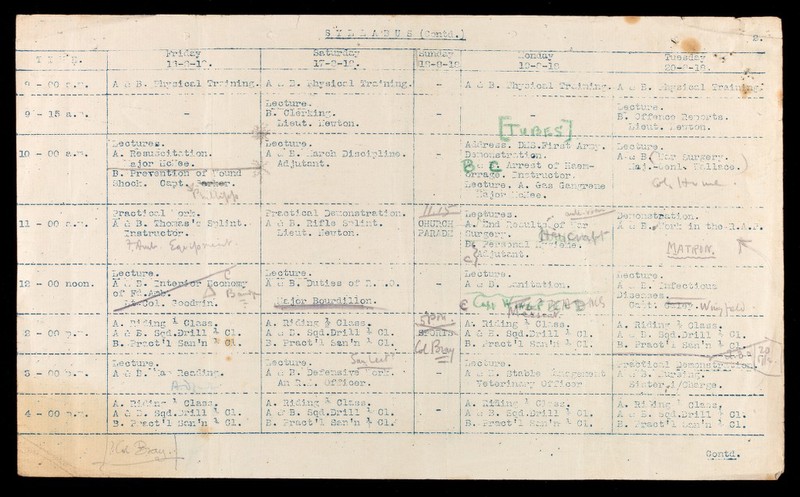 SYLLABUS (Contd.)
2.
TIME.
Friday
Saturday
17-8-18.
Sunday
18-8-18
Monday
19-8-18.
Tuesday
20-8-18.
A & B. Physical Training.
A & B. Physical Training.
-
A & B. Physical Training.
A & B. Physical Training.
9 - 15 a.m.
-
Lecture.
B. Clerking.
Lieut. Newton.
-
-
Lecture.
B. Offence Reports.
Lieut. Newton.
[TUBES]
10 - 00 a.m.
Lectures.
A. Resuscitation.
Major McNee.
B. Prevention of Wound
Shock. Capt. Parker.
Phillips
Lecture.
A & B. March Discipline.
Adjutant.
-
Address. DMS.First Army.
Demonstration.
B & C. Arrest of Haem-
orrage. Instructor.
Lecture. A. Gas Gangrene
Major McNee.
Lecture.
A & B (War Surgery.
Maj.-Genl. Wallace.)
Col Hume.
11 - 00 a.m.
Practical Work.
A & B. Thomas's Splint.
Instructor.
& Amb. Equipment
Practical Demonstration.
A & B. Rifle Splint.
Lieut. Newton.
11.15
CHURCH
PARADE
Lectures.
A. End Results of War
Surgery.
B. Personal Hygiene.
Adjutant.
Demonstration.
A & B. Work in the R.A.P.
MATRON.
12 - 00 noon.
Lecture.
A & B. Interior Economy
of Fd.Amb.
Lt.Col. Goodwin.
Lecture.
A & B. Duties of
Major Bourdillon.
-
Lecture.
A & B. Sanitation.
Lecture.
A & B. Infectious
Diseases.
Capt.
Wingfield
2 - 00 p.m.
A. Riding ½ Class.
A & B. Sqd.Drill ½ Cl.
B. Pract'l San'n ½ Cl.
A. Riding ½ Class.
A & B. Sqd.Drill ½ Cl.
B. Pract'l San'n ½ Cl.
5pm
SPORTS
Col Bray
A. Riding ½ Class.
A & B. Sqd.Drill ½ Cl.
B. Pract'l San'n ½ Cl.
A. Riding ½ Class.
A & B. Sqd.Drill ½ Cl.
B. Pract'l San'n ½ Cl.
3 - 00 p.m.
Lecture.
A & B. Map Reading.
Adj
Lecture.
A & B. Defensive Work.
An R.E. Officer.
Lecture.
A & B. Stable Management
Veterinary Officer
Practical Demonstration.
A & B. Nursing.
Sister i/Charge.
4 - 00 p.m.
A. Riding ½ Class.
A & B. Sqd.Drill ½ Cl.
B. Pract'l San'n ½ Cl.
A. Riding ½ Class.
A & B. Sqd.Drill ½ Cl.
B. Pract'l San'n ½ Cl.
-
A. Riding ½ Class.
A & B. Sqd.Drill ½ Cl.
B. Pract'l San'n ½ Cl.
A. Riding ½ Class.
A & B. Sqd.Drill ½ Cl.
B. Pract'l San'n ½ Cl.
Col Bray
Contd.